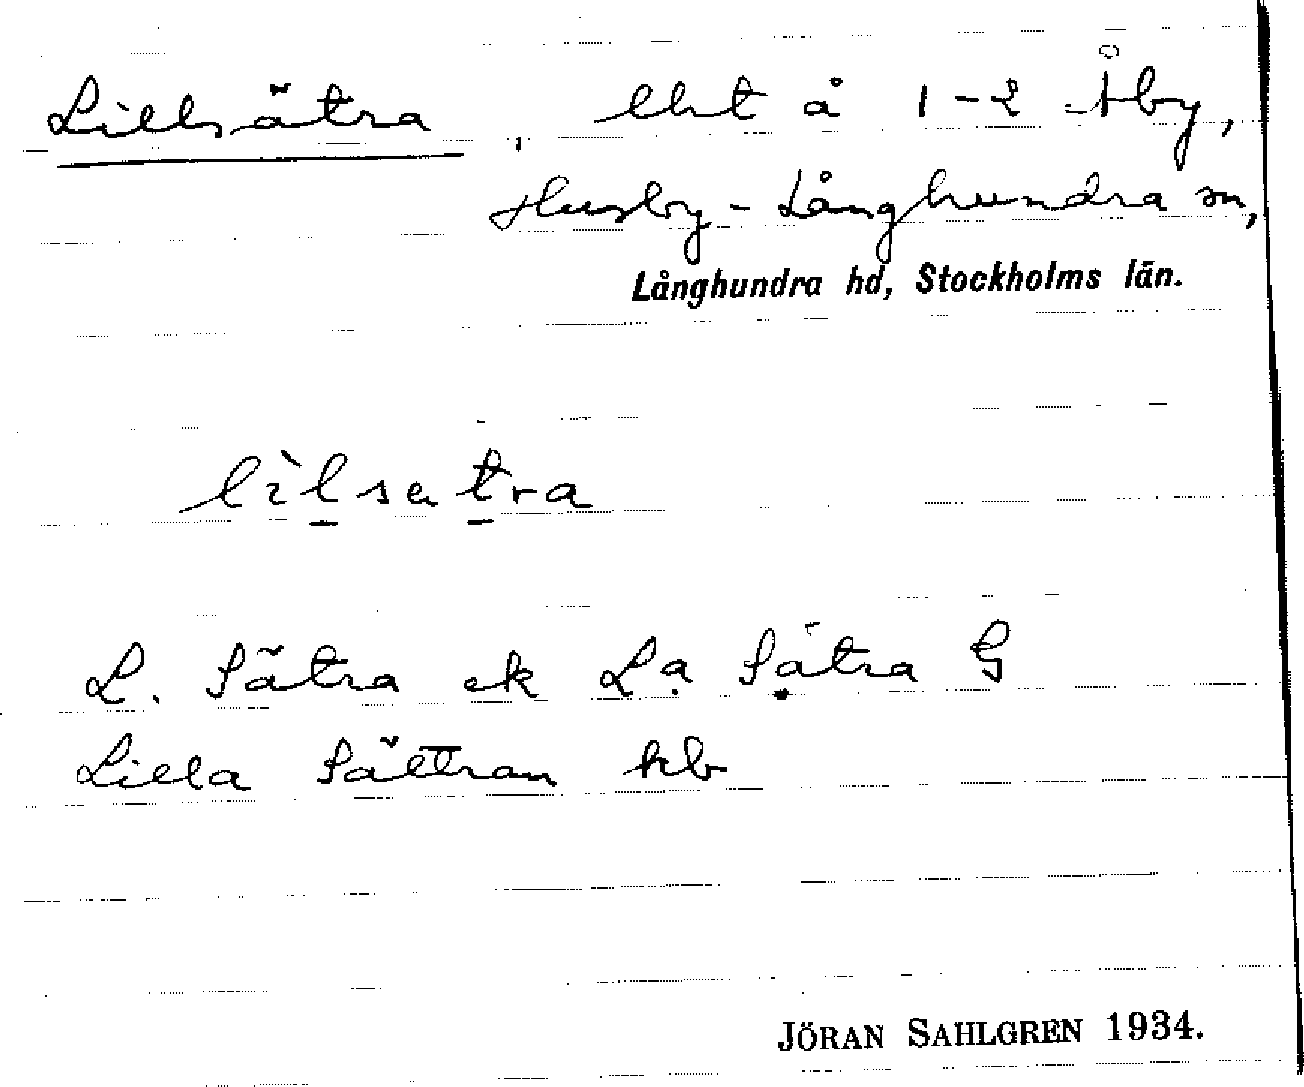 Lillsätra, lht å 1-2 Åby,
Husby-Långhundra sn,
Långhundra hd, Stockholms län.
lìlsätra
L. Sätra ek La Sätra G
Lilla Sättran hb
JÖRAN SAHLGREN 1934.